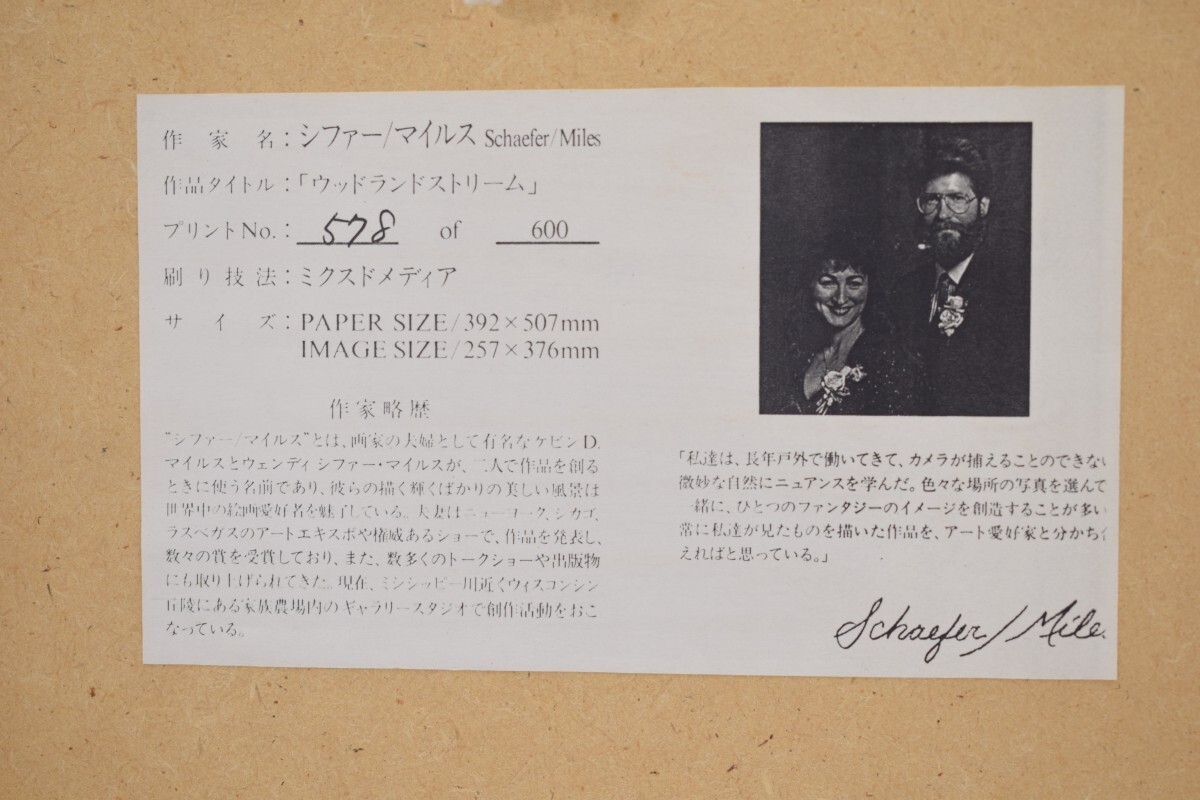 作家名：シファー/マイルス Schaefer/Miles
作品タイトル：「ウッドランドストリーム」
プリントNo.：578 of 600
刷り技法：ミクスドメディア
サイズ：PAPER SIZE/392×507mm
IMAGE SIZE/257×376mm
作家略歴
“シファー/マイルス”とは、画家の夫婦として有名なケビンD.
マイルスとウェンディ シファー・マイルスが、二人で作品を創る
ときに使う名前であり、彼らの描く輝くばかりの美しい風景は
世界中の絵画愛好者を魅了している。夫妻はニューヨーク、シカゴ、
ラスベガスのアートエキスポや権威あるショーで、作品を発表し、
数々の賞を受賞しており、また、数多くのトークショーや出版物
にも取り上げられてきた。現在、ミシシッピー川近くウィスコンシン
丘陵にある家族農場内のギャラリースタジオで創作活動をおこ
なっている。
「私達は、長年戸外で働いてきて、カメラが捕えることのできない
微妙な自然にニュアンスを学んだ。色々な場所の写真を選んで
一緒に、ひとつのファンタジーのイメージを創造することが多い
常に私達が見たものを描いた作品を、アート愛好家と分かち
えればと思っている。」
Schaefer/Mile